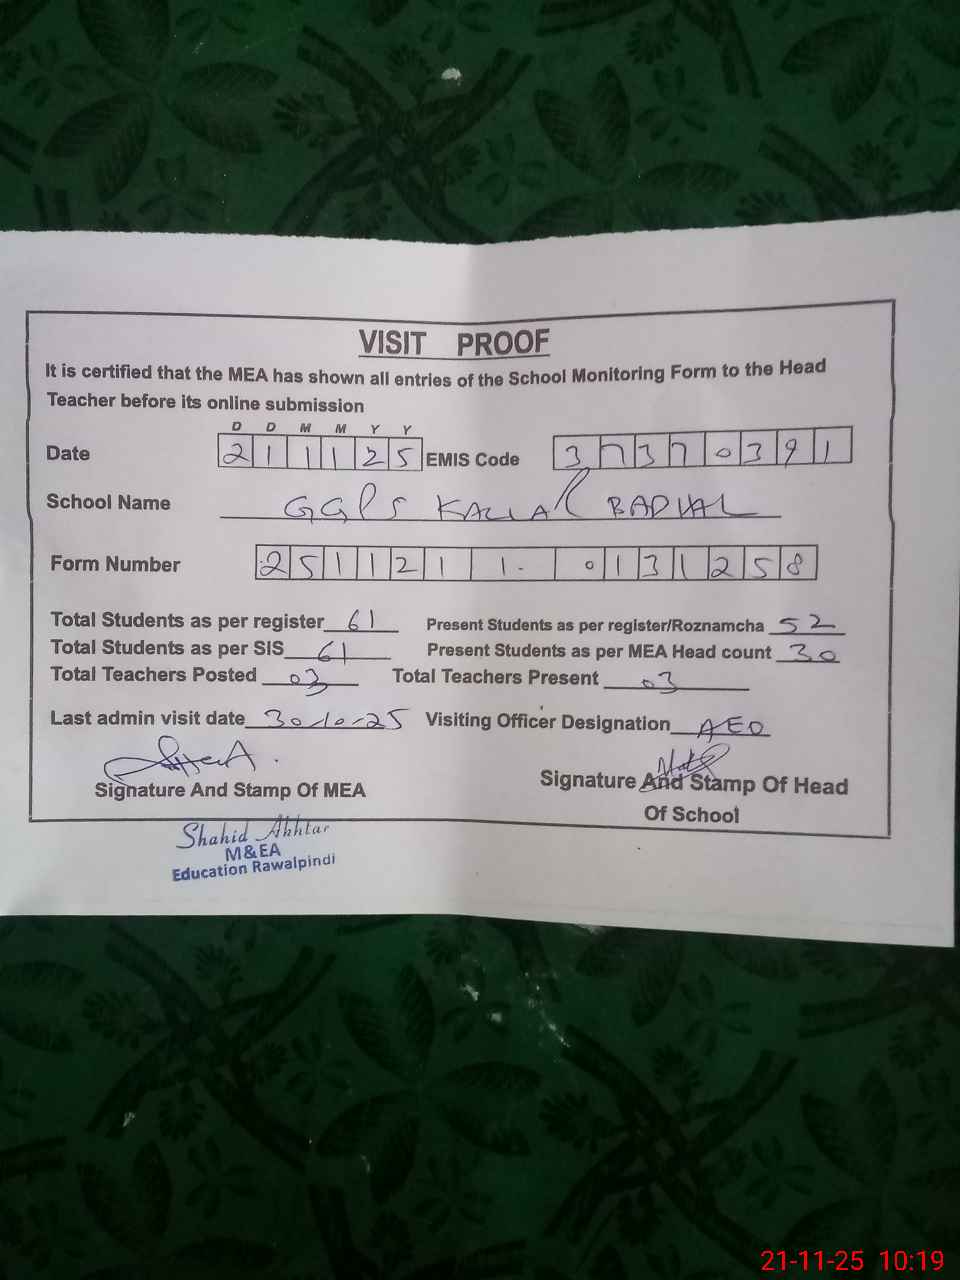 VISIT PROOF
It is certified that the MEA has shown all entries of the School Monitoring Form to the Head
Teacher before its online submission
D D M M Y Y
Date 21 11 25 EMIS Code 37370391
School Name GGPS KALLAR BADHAL
Form Number 251121 1. 0131258
Total Students as per register 61 Present Students as per register/Roznamcha 52
Total Students as per SIS 61 Present Students as per MEA Head count 30
Total Teachers Posted 03 Total Teachers Present 03
Last admin visit date 30-10-25 Visiting Officer Designation AEO
Signature And Stamp Of MEA Signature And Stamp Of Head
Of School
Shahid Akhtar
M&EA
Education Rawalpindi
21-11-25 10:19